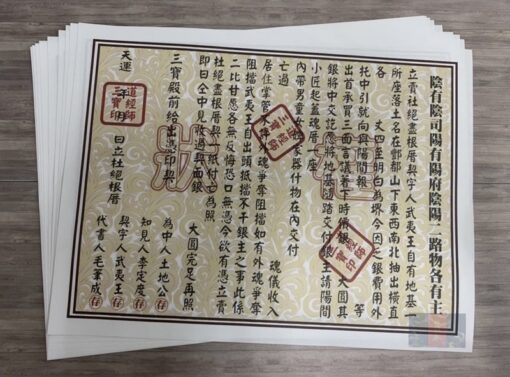 陰有陰司陽有陽府陰陽二路物各有主
立賣杜絕盡根厝契字人武夷王自有地基一
所座落土名在酆都山下東西南北抽出橫直
各丈四至明白為堺今因乏銀費用外
托中引就向與陽間報等
出首承買三面言議著下時價銀大圓其
銀將中交訖愿將地基隨踏交付銀主請陽間
小匠起蓋魂厝一座
內帶男童女婢大器什物在內交付魂儀收入
亡過
居住掌管魂爭奪阻擋如有外魂爭奪
阻擋武夷王自出頭抵擋不干銀主之事此係
二比甘愿各無反悔恐口無憑今欲有憑立賣
杜絕盡根厝契一紙付亡為照
即日仝中見收過契面銀大圓完足再照
三寶殿前給出憑印契
為中人土地公
知見人李定度
契字人武夷王
代書人毛筆成
天運年月日立杜絕根厝
道經師三寶印